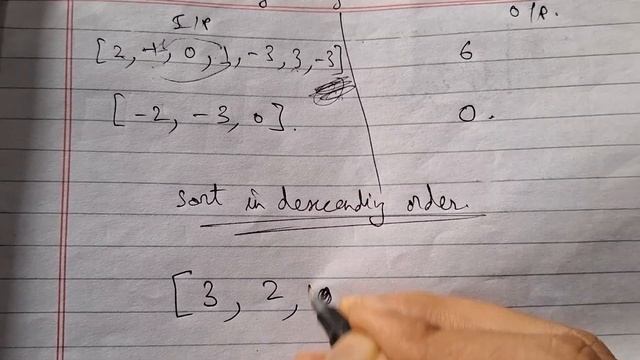 I/P O/P.
[2, -1, 0, 1, -3, 3, -3] 6
[-2, -3, 0]. 0.
Sort in descending order.
[3, 2,